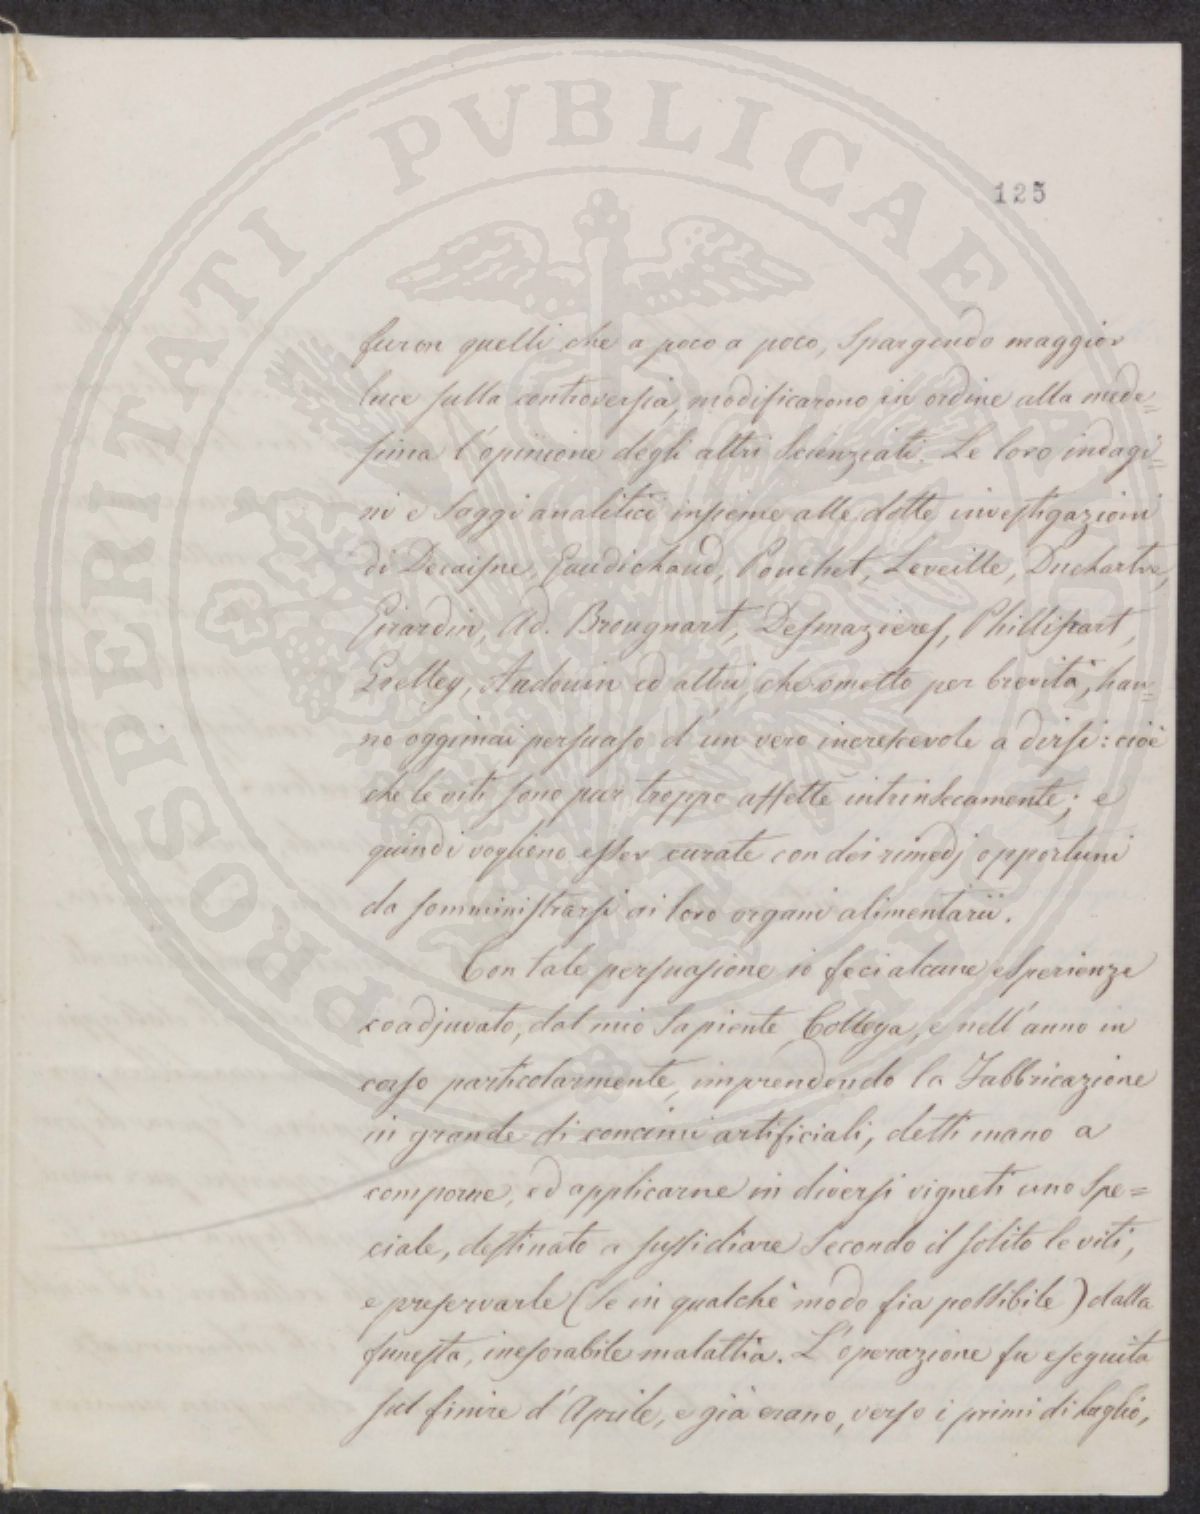 PROSPERITATI PVBLICAE
125
furon quelli che a poco a poco, spargendo maggior
luce sulla controversia, modificarono in ordine alla mede=
sima l'opinione degli altri Scienziati. Le loro indagi=
ni e Saggi analitici insieme alle dotte investigazioni
di Decaisne, Gaudichaud, Pouchet, Leveille, Duchartre,
Girardin, Ad. Brougnart, Desmazieres, Phillipart,
Grelley, Andouin ed altri, che ometto per brevità, han=
no oggimai persuaso d'un vero increscevole a dirsi: cioè
che le viti sono pur troppo affette intrinsecamente; e
quindi vogliono esser curate con dei rimedj opportuni
da somministrarsi ai loro organi alimentarii.
Con tale persuasione io feci alcune esperienze
coadjuvato, dal mio Sapiente Collega, e nell'anno in
corso particolarmente, imprendendo la Fabbricazione
in grande di concimi artificiali, detti mano a
comporne, ed applicarne in diversi vigneti uno Spe=
ciale, destinato a sussidiare Secondo il solito le viti,
e preservarle (Se in qualche modo fia possibile) dalla
funesta, inesorabile malattia. L'operazione fu eseguita
sul finire d'Aprile, e già erano, verso i primi di luglio,